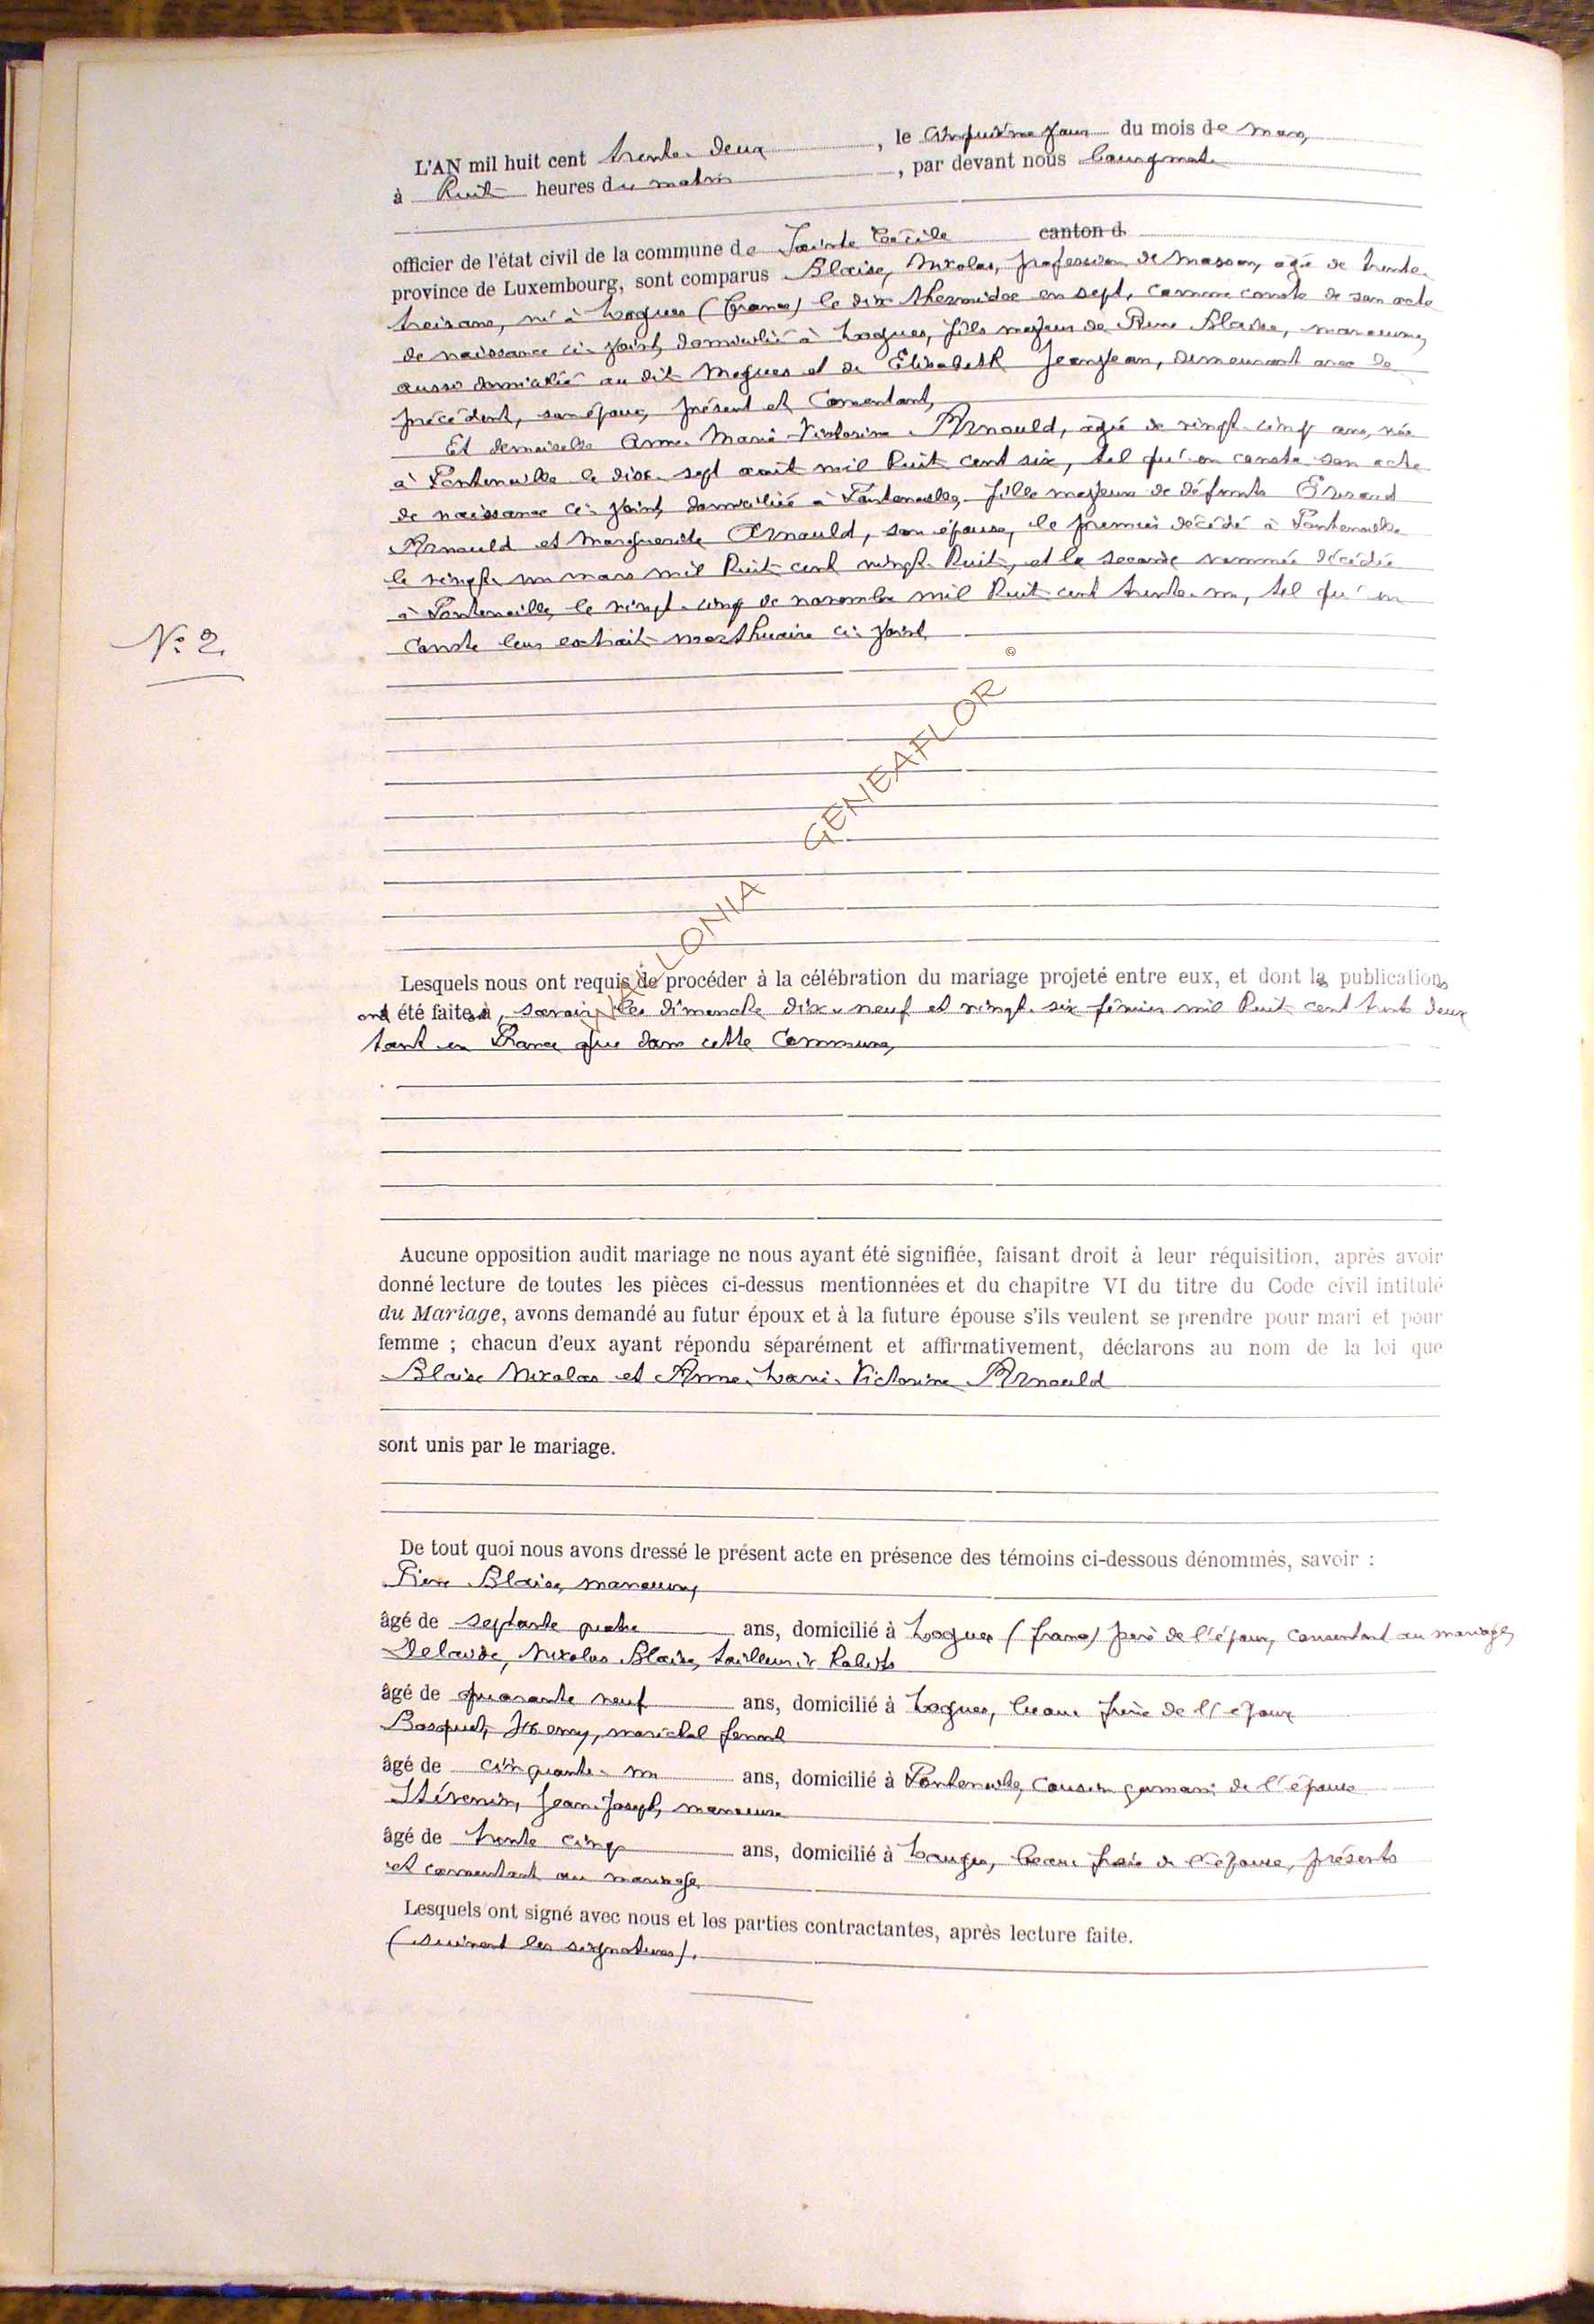 L'AN mil huit cent trente-deux, le cinquième jour du mois de mars,
à huit heures du matin, par devant nous bourgmestre
officier de l'état civil de la commune de Sainte Cécile canton d
province de Luxembourg, sont comparus Blaise, Nicolas, profession de masson, agé de trente-
trois ans, né à Mogues (France) le dix thermidor en sept, comme conste de son acte
de naissance ci-joint, domicilié à Mogues, fils majeur de Pierre Blaise, manœuvre,
aussi domicilié au dit Mogues et de Elisabeth Jeanjean, demeurant avec le
précédent, son époux, présent et consentant,
Et demoiselle Anne-Marie-Victorine Arnould, agée de vingt-cinq ans, née
à Fontenoille le dix-sept août mil huit cent six, tel qu'en conste son acte
de naissance ci-joint, domiciliée à Fontenoille, fille majeure de défunts
Arnould et Marguerite Arnould, son épouse, le premier décédé à Fontenoille
le vingt-un mars mil huit cent vingt-huit, et la seconde nommée décédée
à Fontenoille, le vingt-cinq de novembre mil huit cent trente-un, tel qu'en
conste leur extrait mortuaire ci-joint
N° 2.
©
WALLONIA GENEAFLOR
Lesquels nous ont requis de procéder à la célébration du mariage projeté entre eux, et dont les publications
ont été faites à, savoir, les dimanche dix-neuf et vingt-six février mil huit cent trente deux
tant en France que dans cette commune,
Aucune opposition audit mariage ne nous ayant été signifiée, faisant droit à leur réquisition, après avoir
donné lecture de toutes les pièces ci-dessus mentionnées et du chapitre VI du titre du Code civil intitulé
du Mariage, avons demandé au futur époux et à la future épouse s'ils veulent se prendre pour mari et pour
femme ; chacun d'eux ayant répondu séparément et affirmativement, déclarons au nom de la loi que
Blaise Nicolas et Anne-Marie-Victorine Arnould
sont unis par le mariage.
De tout quoi nous avons dressé le présent acte en présence des témoins ci-dessous dénommés, savoir :
Pierre Blaise, manœuvre,
âgé de septante quatre ans, domicilié à Mogues (france) père de l'époux, consentant au mariage,
Nicolas Blaise, tailleur d'habits
âgé de quarante neuf ans, domicilié à Mogues, beau frère de l'époux
Bosquet, Henry, maréchal ferrant
âgé de cinquante-un ans, domicilié à Fontenoille, cousin germain de l'épouse
Stévenin, Jean-Joseph, manœuvre
âgé de trente cinq ans, domicilié à Mogues, beau frère de l'épouse, présents
et consentant au mariage
Lesquels ont signé avec nous et les parties contractantes, après lecture faite.
(suivent les signatures).